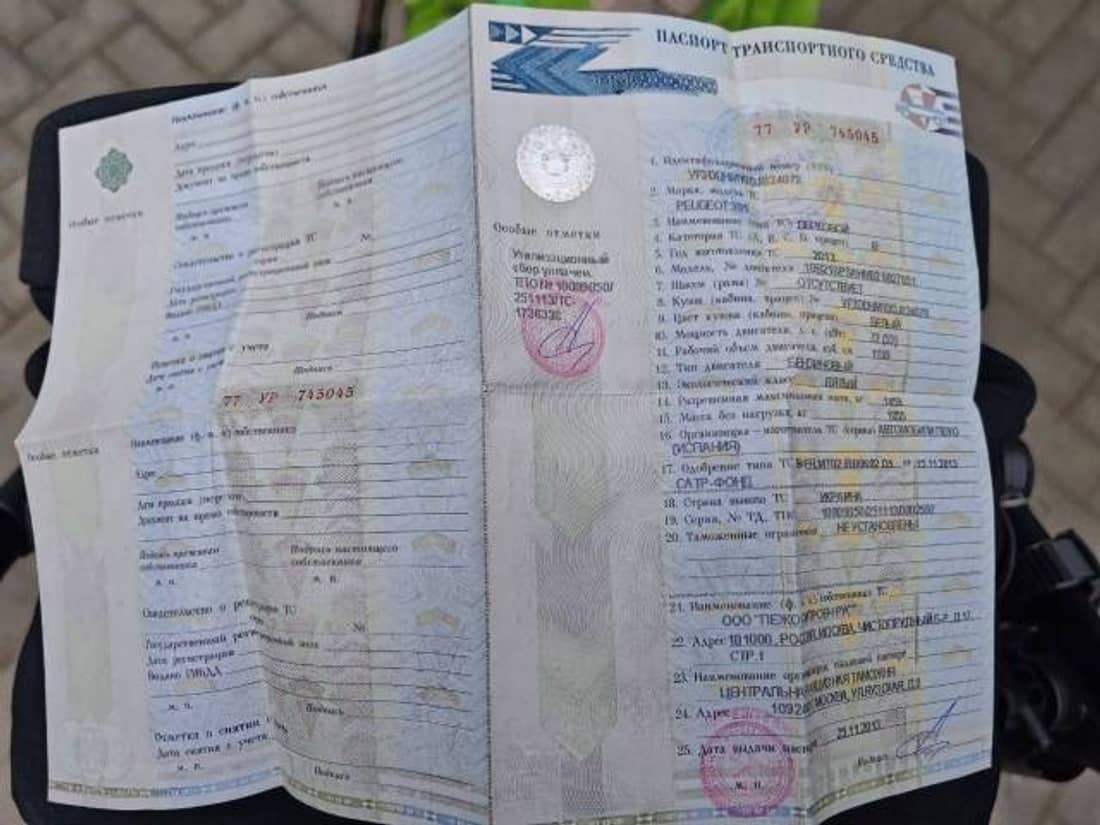 Наименование (ф. и. о.) собственника
Адрес
Дата продажи (передачи)
Документ на право собственности
Подпись прежнего собственника
Подпись настоящего собственника
м. п.
м. п.
Особые отметки
Свидетельство о регистрации ТС
серия №
Государственный регистрационный знак
Дата регистрации
Выдано ГИБДД
м. п.
Подпись
Отметка о снятии с учета
Дата снятия с учета
м. п.
Подпись
77 УР 745045
Особые отметки
Наименование (ф. и. о.) собственника
Адрес
Дата продажи (передачи)
Документ на право собственности
Подпись прежнего собственника
Подпись настоящего собственника
м. п.
м. п.
Свидетельство о регистрации ТС
серия №
Государственный регистрационный знак
Дата регистрации
Выдано ГИБДД
м. п.
Подпись
Отметка о снятии с учета
Дата снятия с учета
м. п.
Подпись
ПАСПОРТ ТРАНСПОРТНОГО СРЕДСТВА
77 УР 745045
Особые отметки
Утилизационный
сбор уплачен.
ТПО № 10009050/
251113/ТС-
1. Идентификационный номер (VIN)
2. Марка, модель ТС
PEUGEOT
3. Наименование (тип ТС) ЛЕГКОВОЙ
4. Категория ТС (А, В, С, D, прицеп) B
5. Год изготовления ТС 2013
6. Модель, № двигателя
7. Шасси (рама) № ОТСУТСТВУЕТ
8. Кузов (кабина, прицеп) №
9. Цвет кузова (кабины, прицепа) БЕЛЫЙ
10. Мощность двигателя, л. с. (кВт)
11. Рабочий объем двигателя, куб. см
12. Тип двигателя БЕНЗИНОВЫЙ
13. Экологический класс ПЯТЫЙ
14. Разрешенная максимальная масса, кг
15. Масса без нагрузки, кг
16. Организация – изготовитель ТС (страна) АВТОМОБИЛИ ПЕЖО
(ИСПАНИЯ)
17. Одобрение типа ТС № от 15.11.2013
САТР-ФОНД
18. Страна вывоза ТС УКРАИНА
19. Серия, № ТД, ТПО
20. Таможенные ограничения НЕ УСТАНОВЛЕНЫ
21. Наименование (ф. и. о.) собственника ТС
ООО
22. Адрес 101000, РОССИЯ, МОСКВА, ЧИСТОПРУДНЫЙ Б-Р, Д.17,
СТР.1
23. Наименование организации, выдавшей паспорт
ЦЕНТРАЛЬНАЯ АКЦИЗНАЯ ТАМОЖНЯ
24. Адрес
25. Дата выдачи паспорта 25.11.2013
м. п.
Подпись